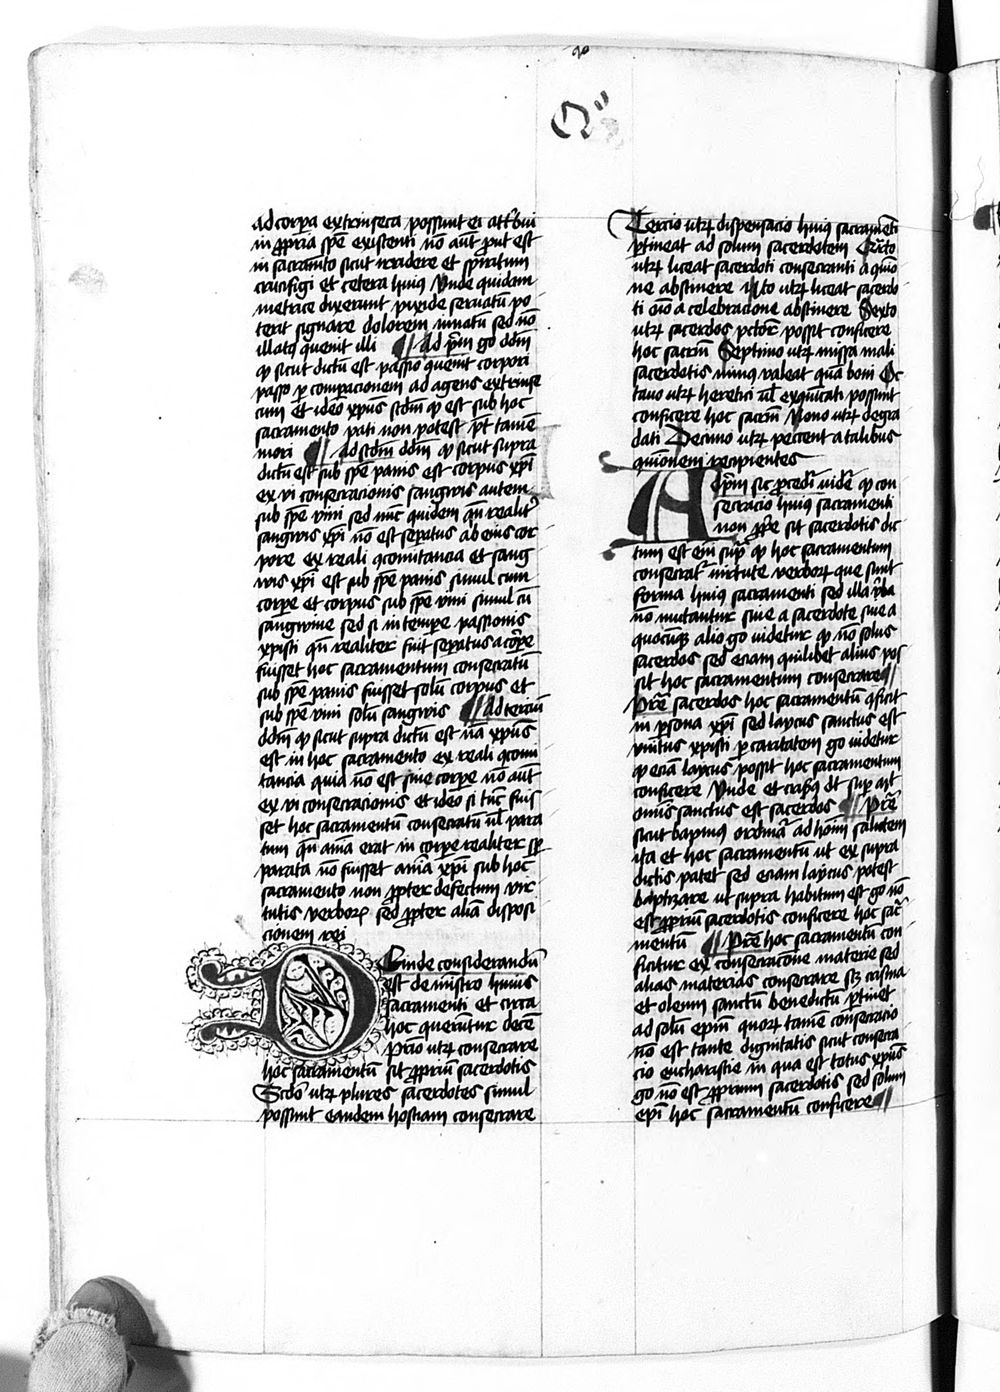 Q
ad corpa extrinseca possunt ei att'bui
in p̱pria spē existenti nō aut̄ put est
in sacram̄to sicut irridere et spūtum
crucifigi et cetera huiꝰ Vnde quidam
metrice dixerunt pixide seruatū po
terit signare dolorem innatū sed nō
illatꝰ quenit illi ¶ Ad pm̄ go dd̄m
ꝙ sicut dictū est passio quenit corpori
passo p̱ compacionem ad agens extrinse
cum et ideo xpūs scdm ꝙ est sub hoc
sacramento pati non potest pt̄ tamē
mori ¶ Ad scdm dd̄m ꝙ sicut supra
dictū est sub spē panis est corpus xpī
ex vi consecracionis sangwis autem
sub spē vini sed nūc quidem qn̄ realit'
sangwis xpī nō est sep̱atus ab eius cor
pore ex reali ꝯcomitancia et sang
wis xpī est sub spē panis simul cum
corpe et corpus sub spē vini simul cū
sangwine sed si in tempe passionis
xpisti qn̄ realiter fuit sep̱atus a corpe
fuisset hoc sacramentum consecratū
sub spē panis fuisset solū corpus et
sub spē vini solū sangwis ¶ Ad terciū
dd̄m ꝙ sicut supra dictū est aīa xpūs
est in hoc sacramento ex reali ꝯcomi
tancia quia nō est sine corpe nō aut̄
ex vi consecracionis et ideo si tūc fuis
set hoc sacramentū consecratū ul̄ para
tum qn̄ aīa erat in corpe realiter se
parata nō fuisset aīa xpī sub hoc
sacramento non p̱pter defectum vir
tutis verboꝝ sed p̱pter aliā disposi
cionem rei
Deinde considerandū
est de mīstro huius
sacramenti et circa
hoc querūtur decē
Prīo utꝝ consecrare
hoc sacramentū sit p̱priū sacerdotis
Scdo utꝝ plures sacerdotes simul
possunt eandem hostiam consecrare
Tercio utꝝ dispensacio huiꝰ sacramēti
p̱tineat ad solum sacerdotem Q̄rto
utꝝ liceat sacerdoti consecranti a ꝯuīo
ne abstinere v̄to utꝝ liceat sacerdo
ti oīo a celebracione abstinere Sexto
utꝝ sacerdos pctor̄ possit conficere
hoc sacrm̄ Septimo utꝝ missa mali
sacerdotis minꝰ valeat quā boni Oc
tauo utꝝ heretici ul̄ exqūicati possunt
conficere hoc sacrm̄ Nono utꝝ degra
dati Decimo utꝝ peccent a talibus
ꝯmūionem recipientes
Ad pm̄ sic pcedit̄ uidet̄ ꝙ con
secracio huiꝰ sacramenti
non pprie sit sacerdotis dic
tum est em̄ supͣ ꝙ hoc sacramentum
consecrat̄ uirtute verboꝝ que sunt
forma huiꝰ sacramenti sed illa v̄ba
nō mutantur siue a sacerdote siue a
quocūqꝫ alio go uidetur ꝙ nō solus
sacerdos sed eciam quilibet alius pos
sit hoc sacramentum consecrare ¶
Pret̄ sacerdos hoc sacramentū ꝯficit
in p̱sona xpī sed laycus sanctus est
vnitus xpisti p̱ caritatem go uidetur
ꝙ eciā laycus possit hoc sacramentum
conficere Vnde et crisꝰ dt̄ sup mt̄
omīs sanctus est sacerdos ¶ Pret̄
sicut baptmꝰ ordinat̄ ad hoīm salutem
ita et hoc sacramentū ut ex supra
dictis patet sed eciam laycus potest
baptizare ut supra habitum est go nō
est p̱priū sacerdotis conficere hoc sacͣ
mentū ¶ Pret̄ hoc sacramentū con
ficitur ex consecracione materie sed
alias materias consecrare sꝫ crisma
et oleum sanctū benedictū p̱tinet
ad solū ep̄um quoꝝ tamē consecracio
nō est tante dignitatis sicut consecra
cio eucharistie in qua est totus xpūs
go nō est p̱prium sacerdotis sed solum
ep̄i hoc sacramentū conficere ¶